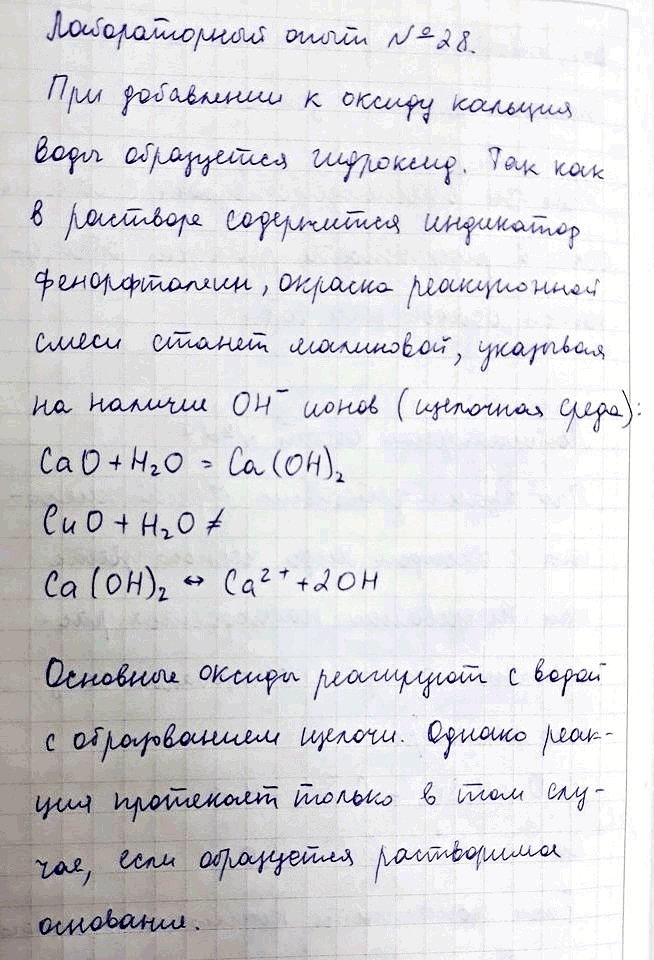 Лабораторный опыт №28.
При добавлении к оксиду кальция
воды образуется гидроксид. Так как
в растворе содержится индикатор
фенорфталеин, окраска реакционной
смеси станет малиновой, указывая
на наличие OH⁻ ионов (щелочная среда):
CaO + H₂O = Ca(OH)₂
CuO + H₂O ≠
Ca(OH)₂ ↔ Ca²⁺ + 2OH
Основные оксиды реагируют с водой
с образованием щелочи. Однако реак-
ция протекает только в том слу-
чае, если образуется растворимое
основание.